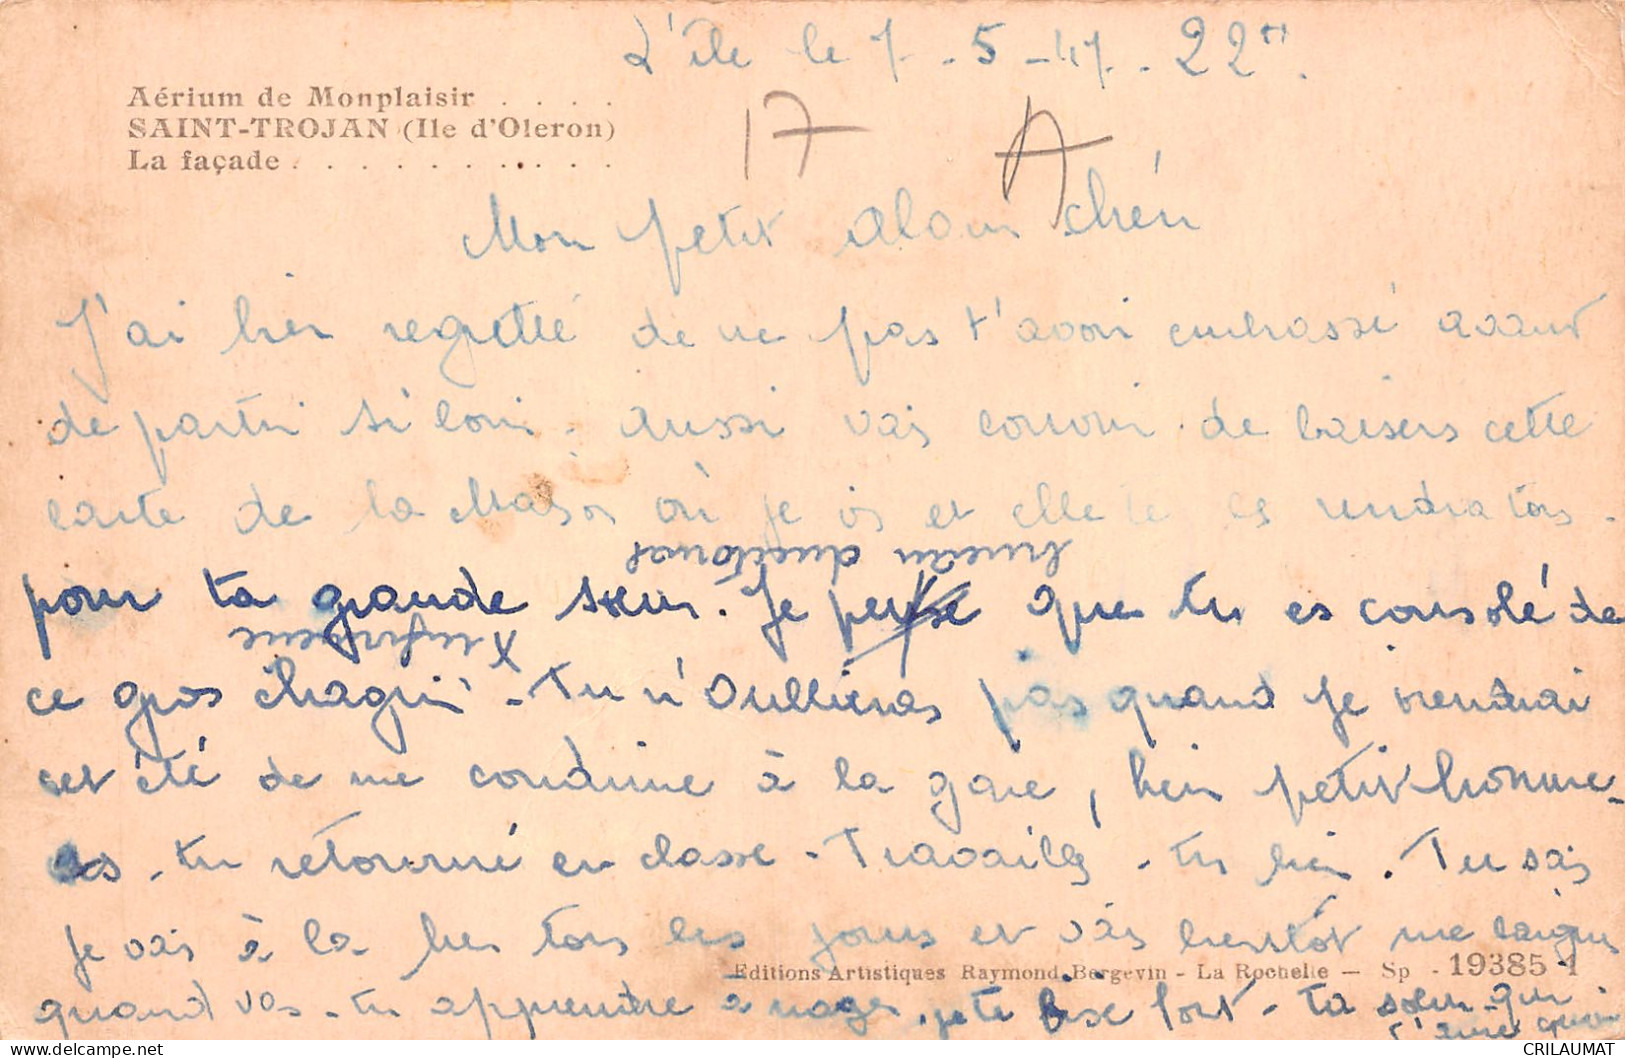 L'île le 7-5-47. 22h.
Aérium de Monplaisir . . . .
SAINT-TROJAN (Ile d'Oleron)
La façade . . . . . . . . . .
17 A
Mon petit Alain chéri
J'ai bien regretté de ne pas t'avoir embrassé avant
de partir si loin. aussi vais couvrir de baisers cette
carte de la Maison où je vis et elle te les rendra tous.
pour ta grande soeur. Je pense que tu es consolé de
ce gros chagrin. Tu n'oublieras pas quand je viendrai
cet été de me conduire à la gare, hein petit homme.
es-tu retourné en classe. Travailles-tu bien. Tu sais
je vais à la mer tous les jours et vais bientôt me baigner
Editions Artistiques Raymond Bergevin - La Rochelle — Sp - 19385-1
quand vas-tu apprendre à nager. je te bise fort. ta soeur qui
t'aime
CRILAUMAT